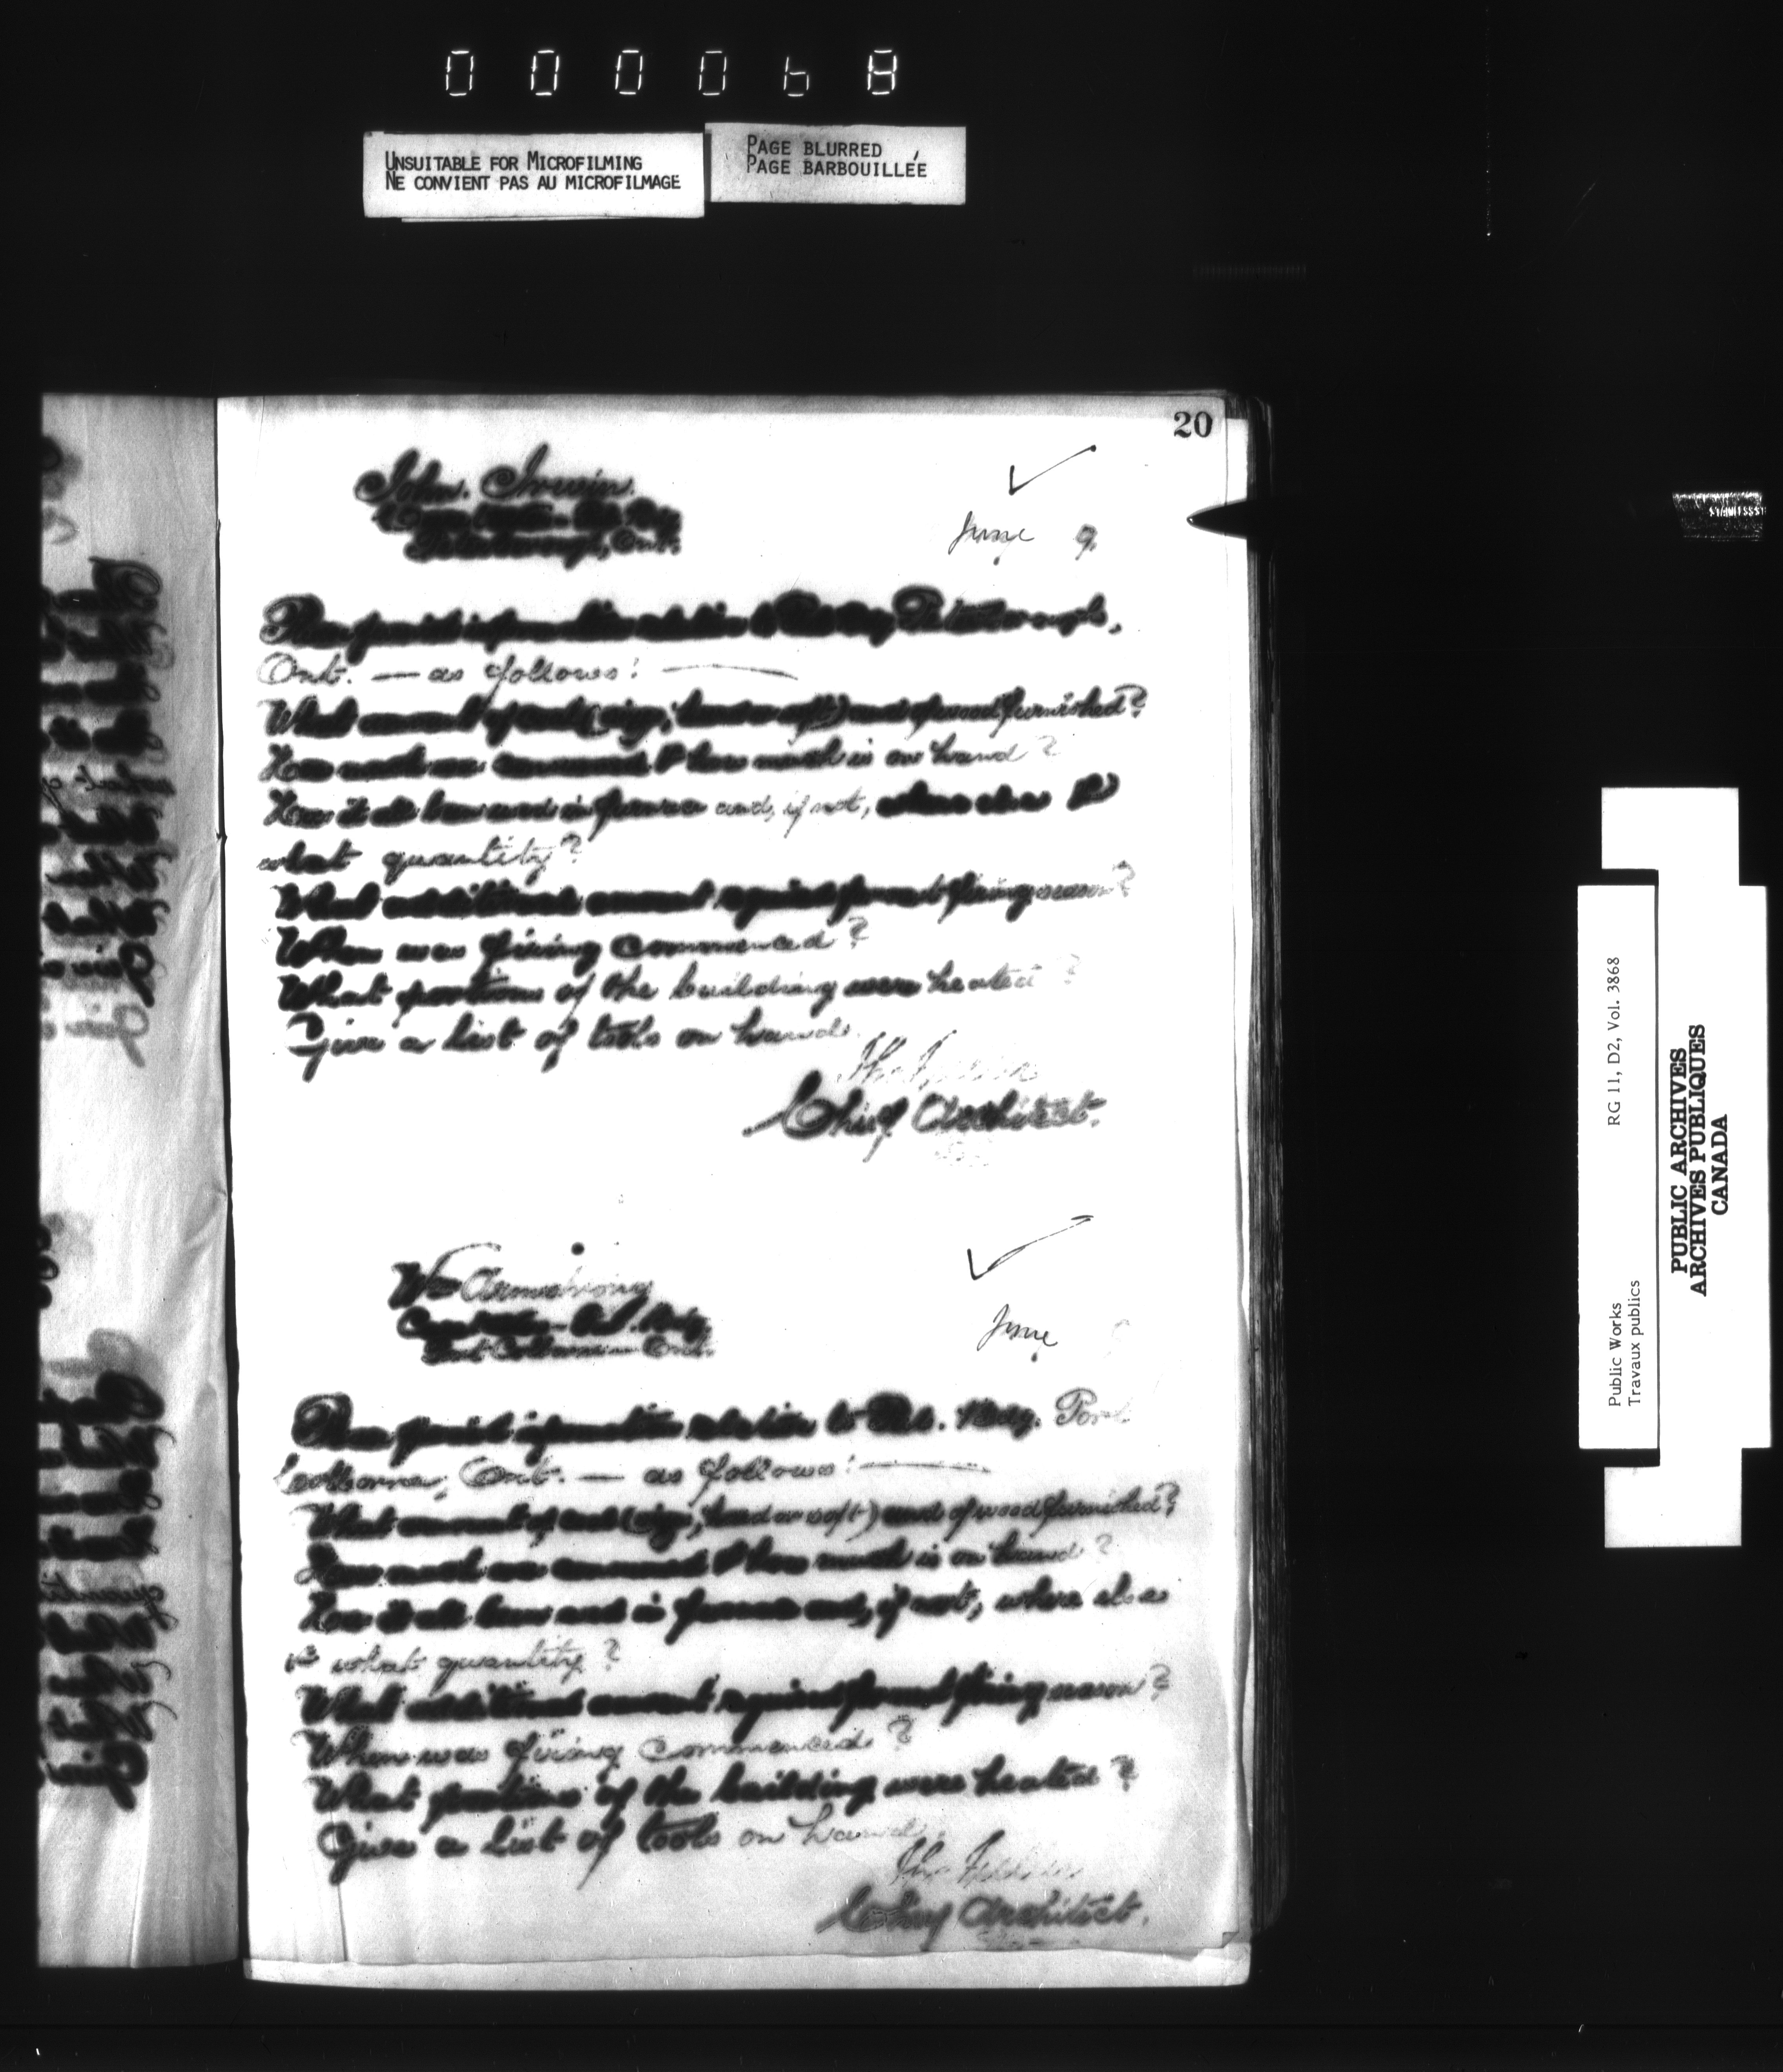 000068
UNSUITABLE FOR MICROFILMING
NE CONVIENT PAS AU MICROFILMAGE
PAGE BLURRED
PAGE BARBOUILLÉE
20
John Irwin.
Peterborough, Ont.
June 9.
Please furnish information relative to Pub. Bldg. Peterborough,
Ont. — as follows: —
What amount of coal (egg, hard or soft) and of wood furnished?
How much was consumed & how much is on hand?
Has it all been used in furnace and, if not, where else &
what quantity?
What additional amount required for next firing season?
When was firing commenced?
What portions of the building were heated?
Give a list of tools on hand.
Chief Architect.
Wm Armstrong
Caretaker - Pub. Bldg.
Port Colborne - Ont.
June
Please furnish information relative to Pub. Bldg. Port
Colborne, Ont. — as follows: —
What amount of coal (egg, hard or soft) and of wood furnished?
How much was consumed & how much is on hand?
Has it all been used in furnace and, if not, where else
& what quantity?
What additional amount required for next firing season?
When was firing commenced?
What portions of the building were heated?
Give a list of tools on hand.
Chief Architect.
Public Works
Travaux publics
RG 11, D2, Vol. 3868
PUBLIC ARCHIVES
ARCHIVES PUBLIQUES
CANADA